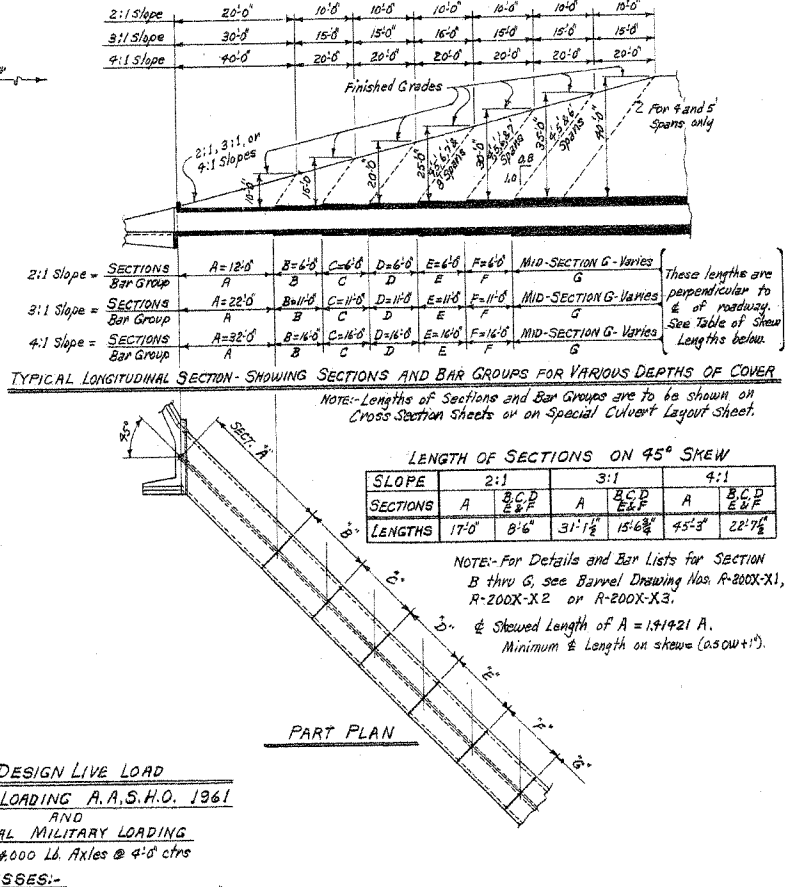 2:1 Slope 20'-0" 10'-0" 10'-0" 10'-0" 10'-0" 10'-0" 10'-0"
3:1 Slope 30'-0" 15'-0" 15'-0" 15'-0" 15'-0" 15'-0"
4:1 Slope 40'-0" 20'-0" 20'-0" 20'-0" 20'-0" 20'-0" 20'-0"
Finished Grades
2:1, 3:1, or
4:1 Slopes
10'-0"
15'-0"
20'-0"
25'-0"
Spans
30'-0"
Spans
35'-0"
4,5,&6'
Spans
40'-0"
0.8
1.0
For 4' and 5'
Spans only
2:1 Slope = SECTIONS A=12'-0" B=6'-0" C=6'-0" D=6'-0" E=6'-0" F=6'-0" MID-SECTION G-Varies
Bar Group A B C D E F G
3:1 Slope = SECTIONS A=22'-0" B=11'-0" C=11'-0" D=11'-0" E=11'-0" F=11'-0" MID-SECTION G-Varies
Bar Group A B C D E F G
4:1 Slope = SECTIONS A=32'-0" B=16'-0" C=16'-0" D=16'-0" E=16'-0" F=16'-0" MID-SECTION G-Varies
Bar Group A B C D E F G
These lengths are
perpendicular to
℄ of roadway.
See Table of Skew
Lengths below.
TYPICAL LONGITUDINAL SECTION-SHOWING SECTIONS AND BAR GROUPS FOR VARIOUS DEPTHS OF COVER
NOTE:-Lengths of Sections and Bar Groups are to be shown on
Cross Section Sheets or on Special Culvert Layout Sheet.
45°
SECT. "A"
"B"
"C"
"D"
"E"
"F"
"G"
LENGTH OF SECTIONS ON 45° SKEW
SLOPE 2:1 3:1 4:1
SECTIONS A B,C,D E&F A B,C,D E&F A B,C,D E&F
LENGTHS 17'-0" 8'-6" 31'-1½" 15'-6¾" 45'-3" 22'-7½"
NOTE:-For Details and Bar Lists for SECTION
B thru G, see Barrel Drawing Nos. R-200X-X1,
R-200X-X2 or R-200X-X3.
℄ Skewed Length of A = 1.41421 A.
Minimum ℄ Length on skew= (0.5OW+1").
PART PLAN
DESIGN LIVE LOAD
LOADING A.A.S.H.O. 1961
AND
AL MILITARY LOADING
4,000 Lb. Axles @ 4'-0" ctrs
SSES:-